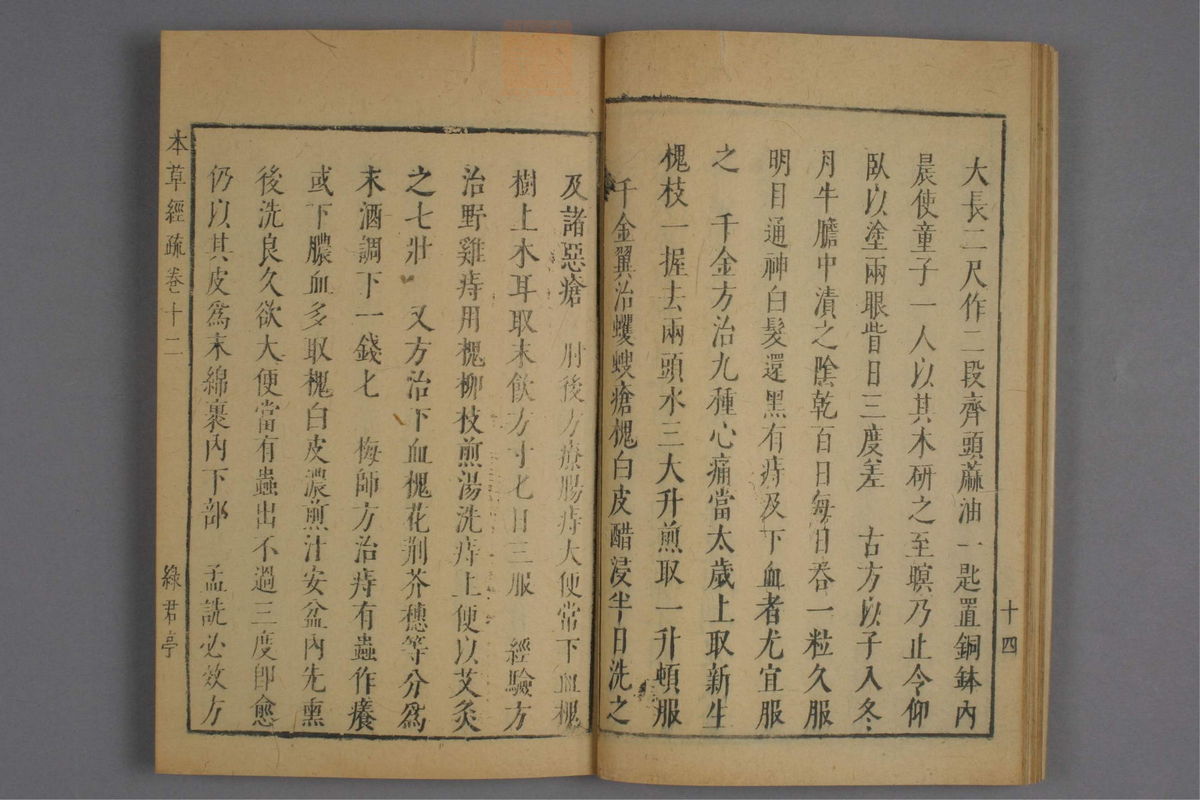 大長二尺作二段齊頭蔴油一匙置銅鉢內
晨使童子一人以其木研之至暝乃止令仰
臥以塗兩眼眥日三度差　古方以子入冬
月牛膽中漬之陰乾百日每日吞一粒久服
明目通神白髮還黑有痔及下血者尤宜服
之　千金方治九種心痛當太歲上取新生
槐枝一握去兩頭水三大升煎取一升頓服
千金翼治蠼螋瘡槐白皮醋浸半日洗之
十四
及諸惡瘡　肘後方療腸痔大便常下血槐
樹上木耳取末飲方寸匕日三服　經驗方
治野雞痔用槐柳枝煎湯洗痔上便以艾灸
之七壯　又方治下血槐花荆芥穗等分爲
末酒調下一錢匕　梅師方治痔有蟲作癢
或下膿血多取槐白皮濃煎汁安盆內先熏
後洗良久欲大便當有蟲出不過三度卽愈
仍以其皮爲末綿裹內下部　孟詵必效方
本草經疏卷十二
綠君亭